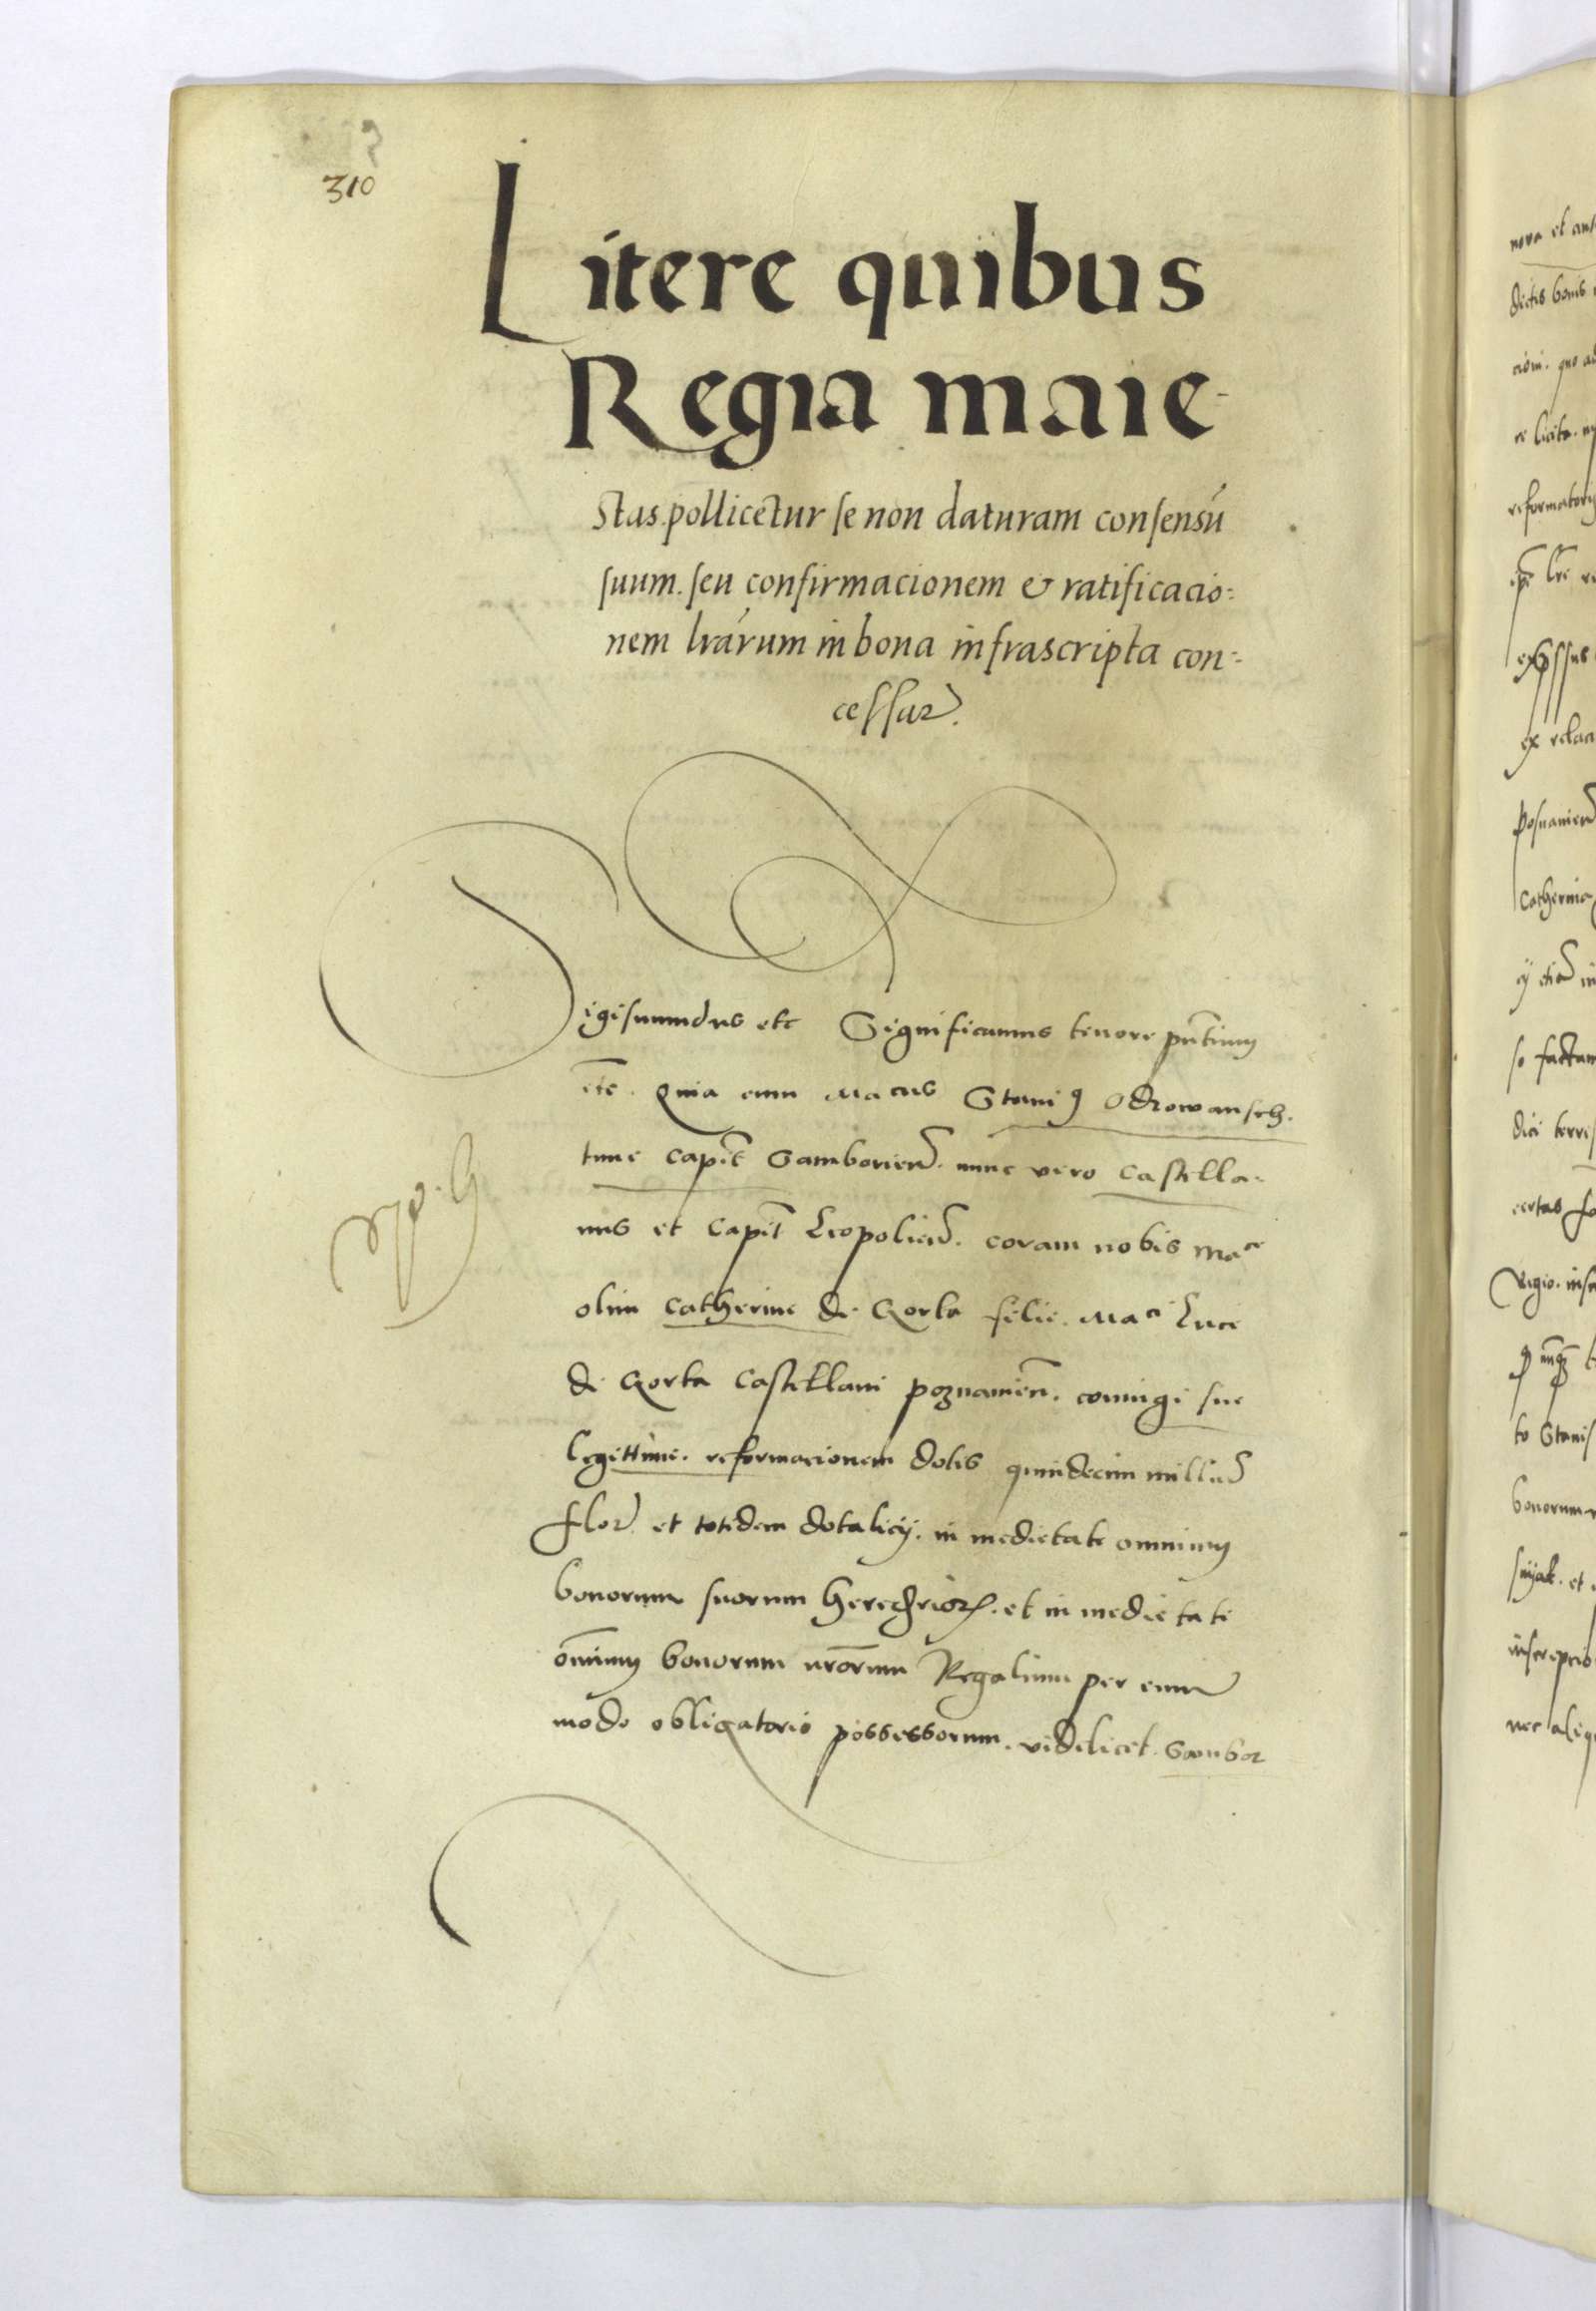 310
Litere quibus
Regia maie-
stas pollicetur se non daturam consensū
suum. seu confirmacionem & ratificacio:
nem lrārum in bona infrascripta con:
cessar̄.
Sigismundus etc Significamus tenore pn̄tium
etc̄. Quia cum Macus Staniꝯ Odrowansch.
tunc capit̄ Samborien̄. nunc vero castella-
nus et capit̄ Leopolien̄. coram nobis Mace
olim catherine de Gorka filie. Maci Luce
de Gorka castellani poznanien̄. coniugi sue
legittime. reformacionem dotis quindecim milliū
flor̄ et totidem dotalicij. in medietate omnium
bonorum suorum hereditarioꝝ. et in medietate
om̄ium bonorum nr̄orum Regalium per eum
modo obligatorio possessorum. videlicet. Sambor
nova et
dictis bonis
re licita.
ex relaci
posnanien̄
catherina
so factam
dici terres
certas
Regio.
to Stanis
bonorum
inscripcio
nec aliq